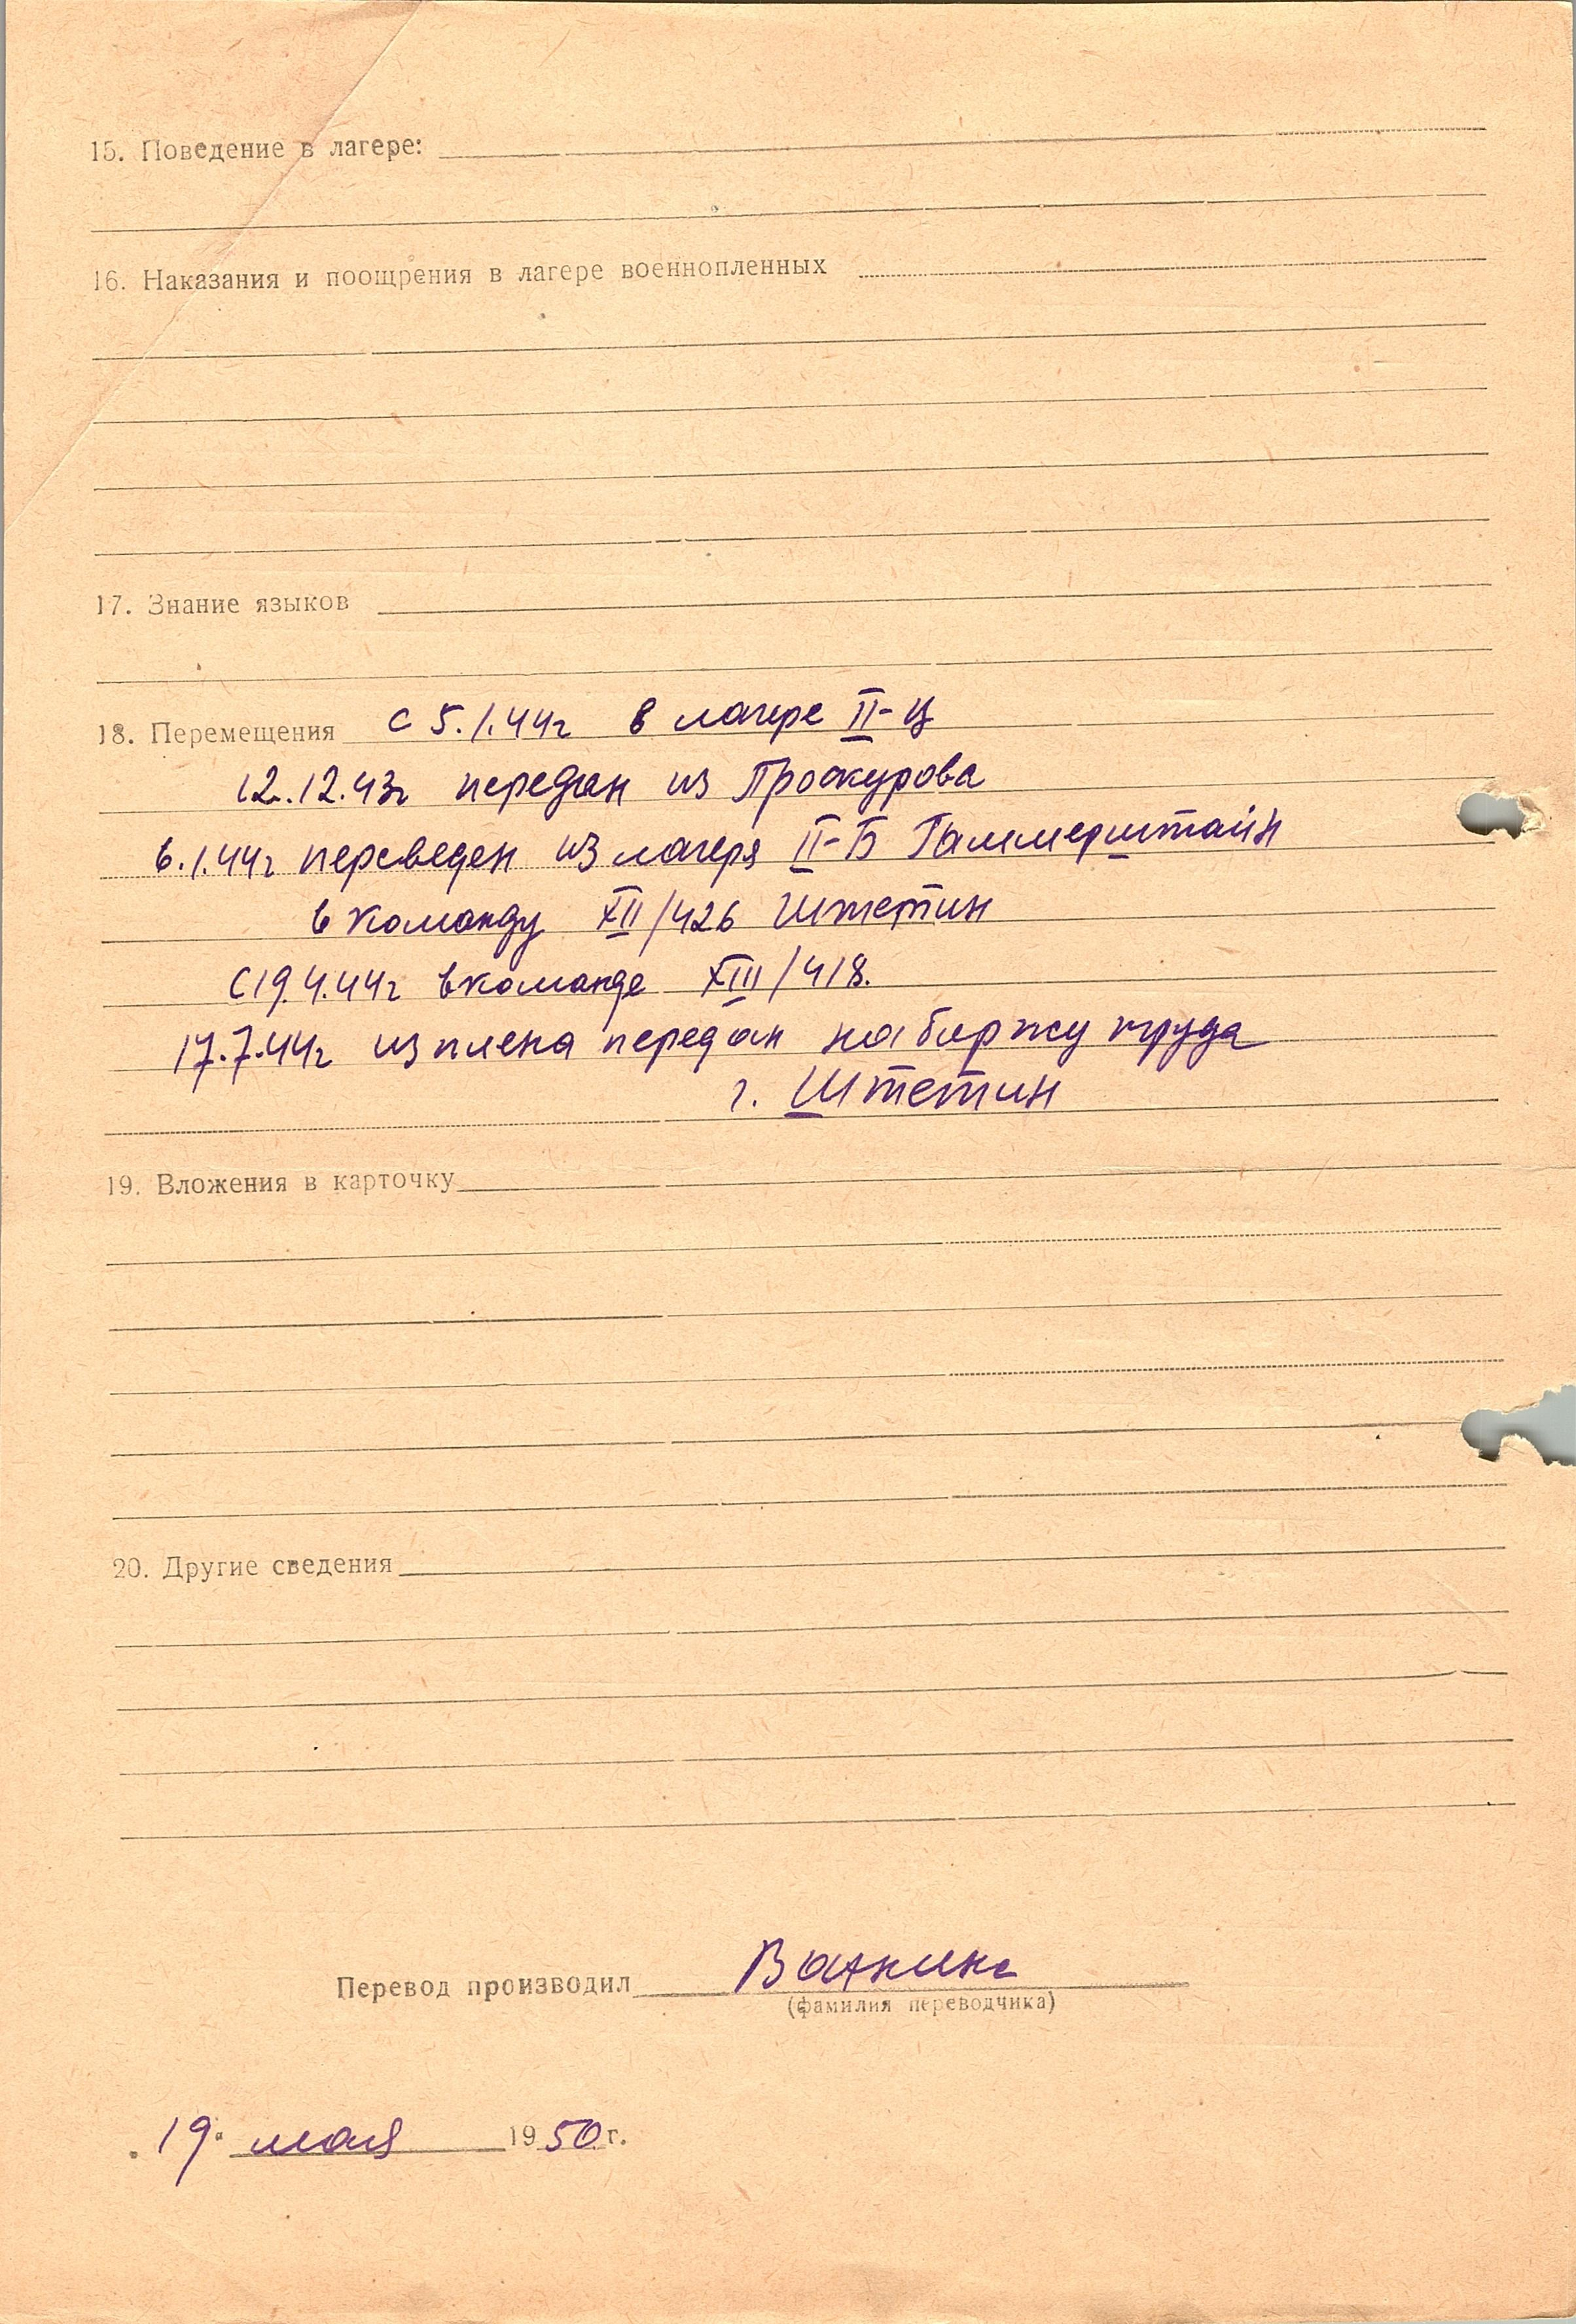 15. Поведение в лагере:
16. Наказания и поощрения в лагере военнопленных
17. Знание языков
18. Перемещения с 5.1.44г в лагере II-Ц
12.12.43г передан из Проскурова
6.1.44г переведен из лагеря II-Б Гаммерштайн
в команду XII/426 Штетин
С 19.4.44г в команде XIII/418.
17.7.44г из плена передан на биржу труда
г. Штетин
19. Вложения в карточку
20. Другие сведения
Перевод производил
(фамилия переводчика)
19 мая 1950 г.